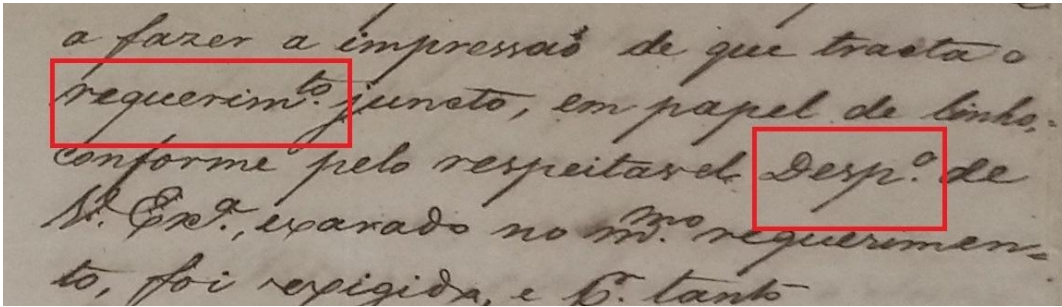 a fazer a impressaõ de que tracta o
requerim.to juncto, em papel de linho,
conforme pelo respeitavel Desp.o de
V. Ex.a, exarado no m.mo requerimen=
to, foi exigida, e P.r tanto